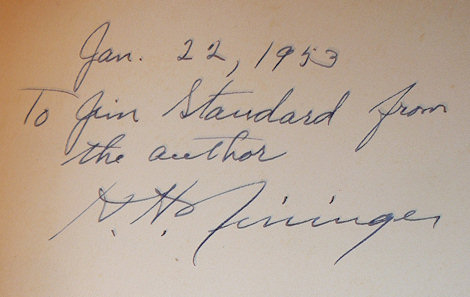 Jan. 22, 1953
To Jim Standard from
the author
H. H. Nininger